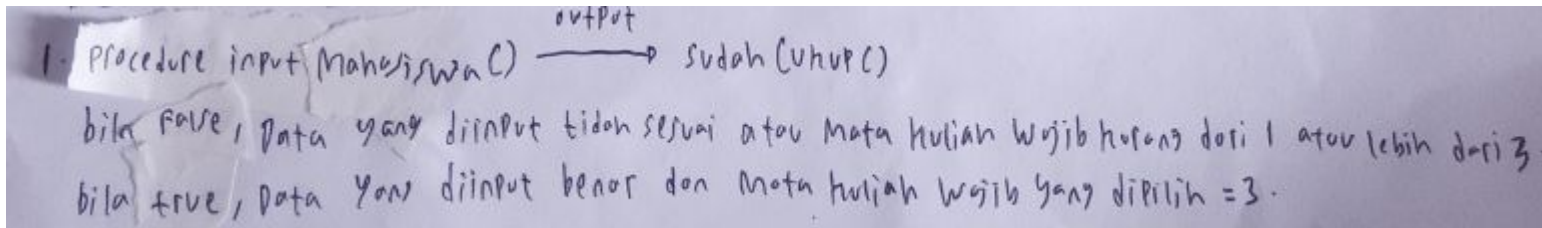 output
1. Procedure input Mahasiswa() → sudah Cukup()
bila false, Data yang diinput tidak sesuai atau Mata kuliah Wajib kurang dari 1 atau lebih dari 3
bila true, Data yang diinput benar dan Mata kuliah wajib yang dipilih = 3.